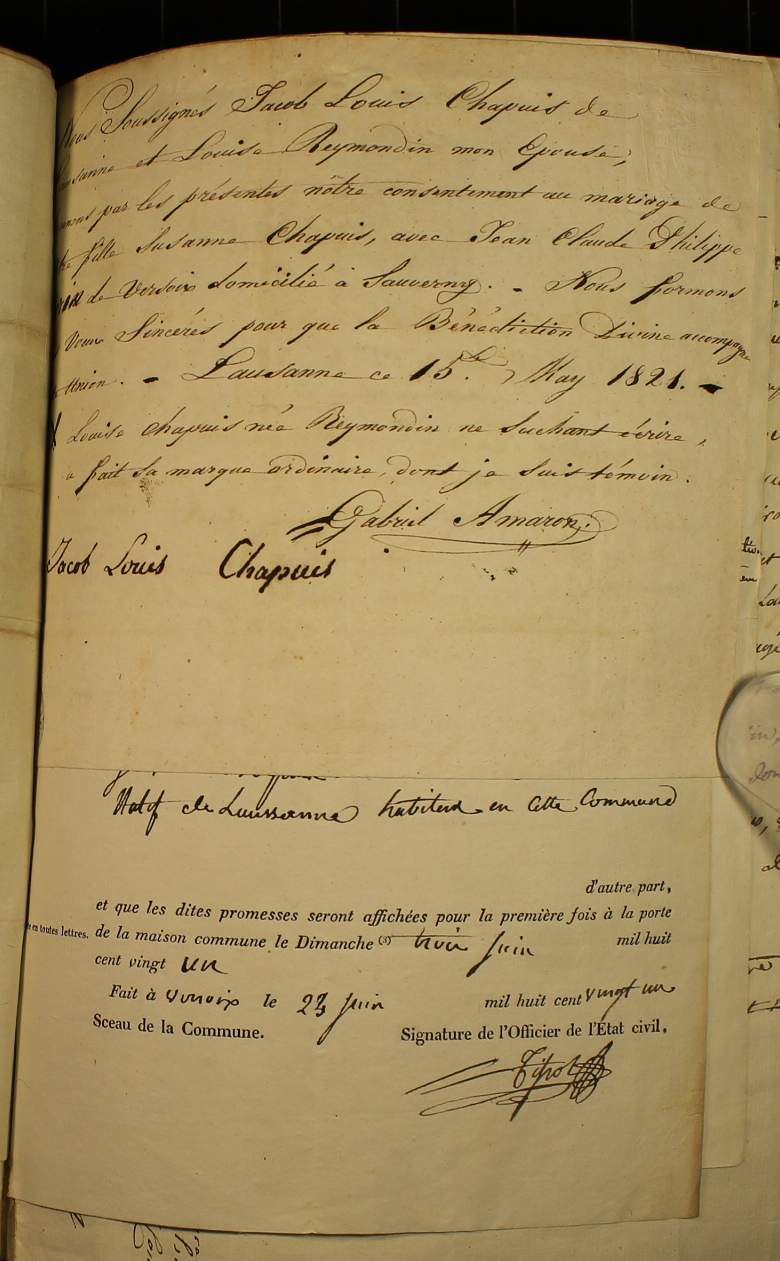 Nous Soussignés Jacob Louis Chapuis de
Lausanne et Louise Reymondin mon Epouse,
donnons par les présentes nôtre consentement au mariage de
fille Susanne Chapuis, avec Jean Claude Philippe
de Versoix domicilié à Sauverny. - Nous formons
Voeux Sincères pour que la Bénédiction Divine accompagne
Union. - Lausanne ce 15. May 1821. -
X Louise Chapuis née Reymondin ne Sachant écrire,
a fait sa marque ordinaire, dont je suis témoin.
Gabriel Amaron.
Jacob Louis Chapuis
Natif de Laussanne habitant en cette Commune
d'autre part,
et que les dites promesses seront affichées pour la première fois à la porte
en toutes lettres. de la maison commune le Dimanche trois Juin mil huit
cent vingt un
Fait à Versoix le Juin mil huit cent vingt un
Sceau de la Commune. Signature de l'Officier de l'État civil.